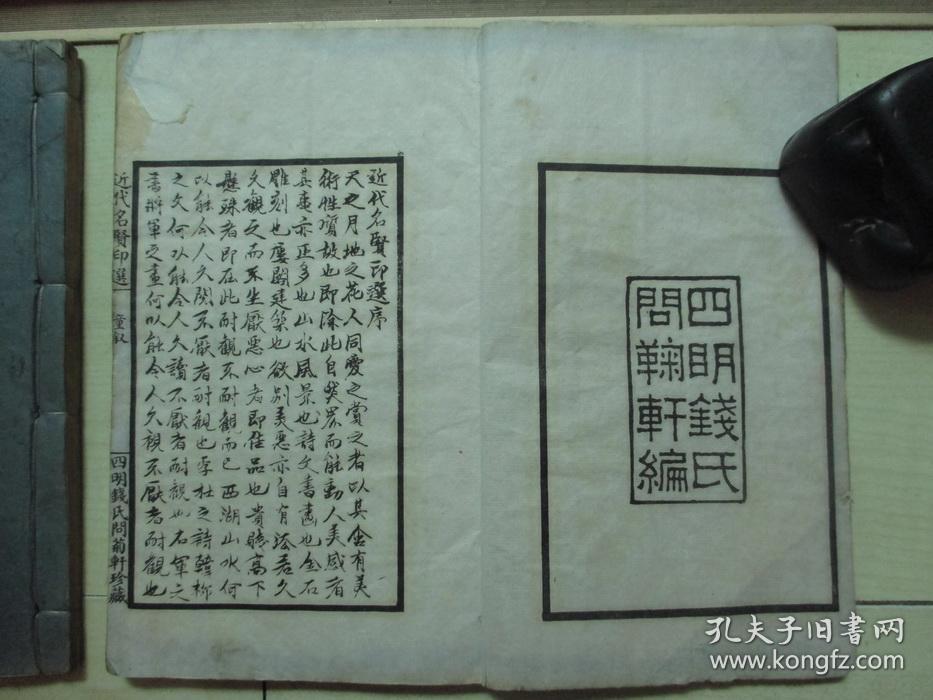 四明錢氏
問鞠軒編
近代名賢印選序
天之月地之花人同愛之賞之者以其含有美
術性質故也即除此自然界而能動人美感者
其畫亦正多也山水風景也詩文書畫也金石
雕刻也廔閣建築也欲別美惡亦自有法若久
久觀之而不生厭惡心者即佳品也貴賤高下
懸殊者即在此耐觀不耐觀而已西湖山水何
以能令人久閱不厭者耐觀也李杜之詩韓柳
之文何以能令人久讀不厭者耐觀也右軍之
書將軍之畫何以能令人久視不厭者耐觀也
近代名賢印選
童敘
四明錢氏問菊軒珍藏
孔夫子旧书网
www.kongfz.com